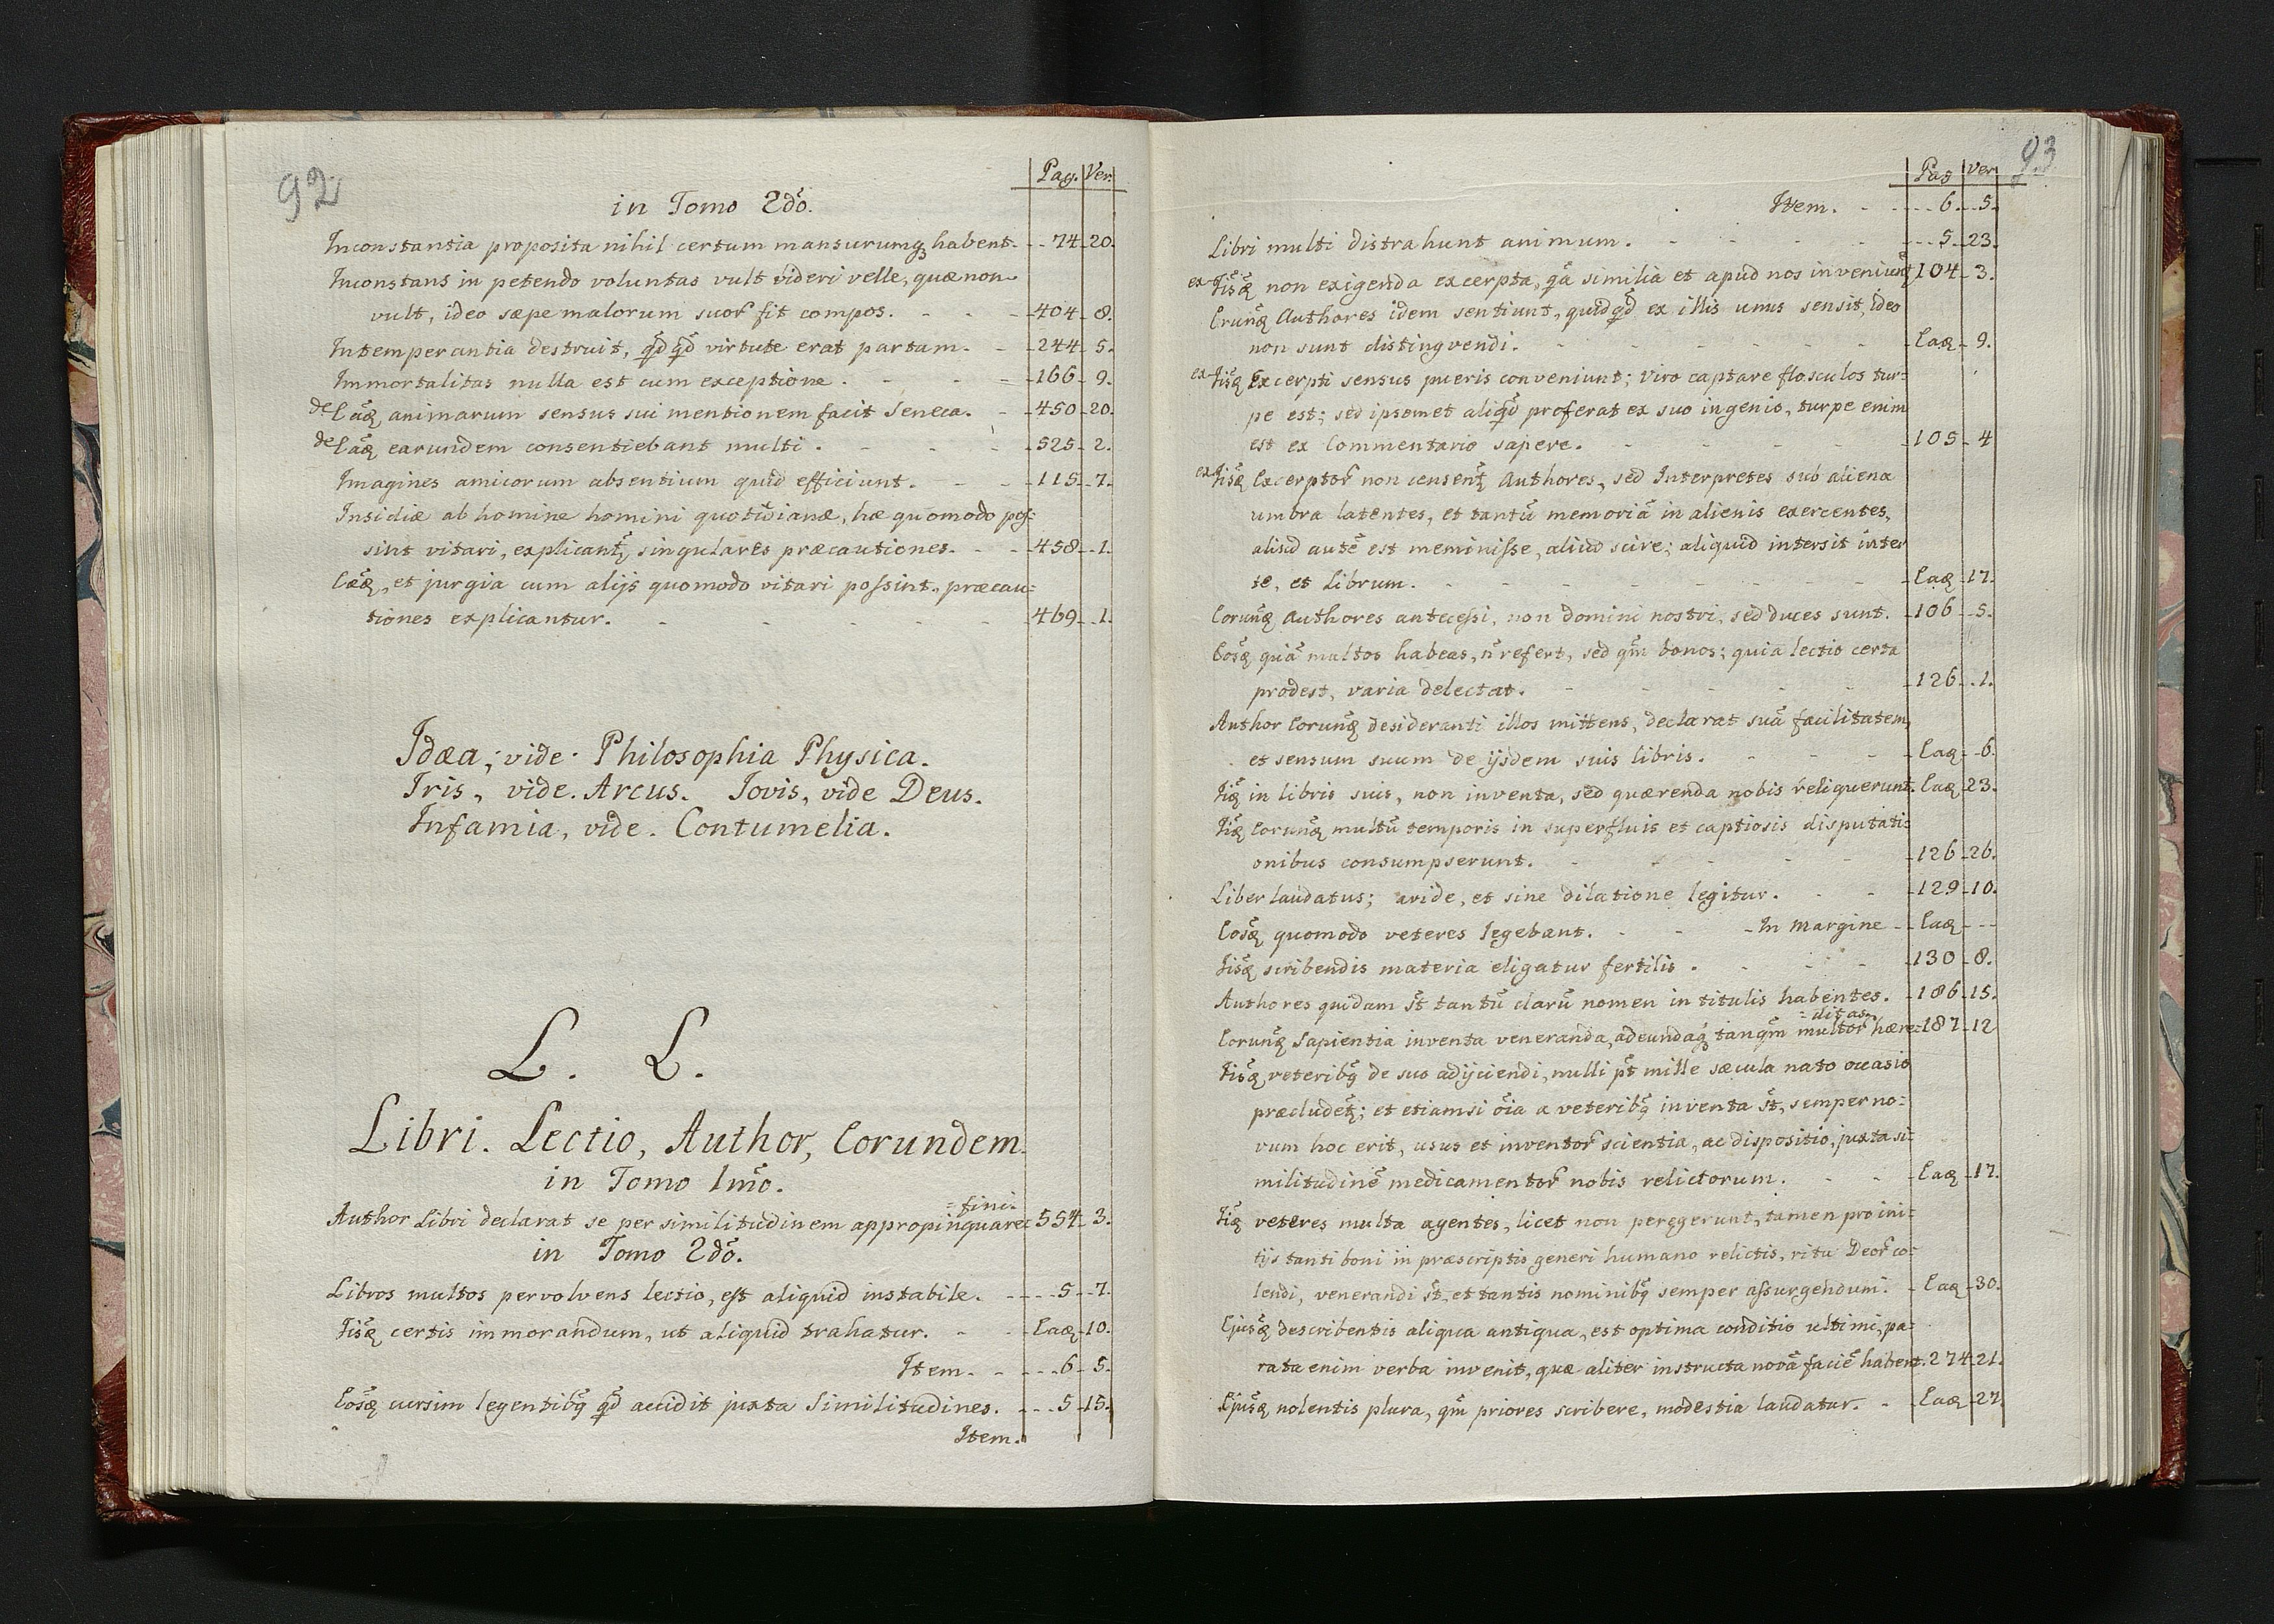 92
Pag. Ver.
in Tomo 2dõ.
Inconstantia proposita nihil certum mansurumq habent. 74 20.
Inconstans in petendo voluntas vult videri velle, quæ non
vult, ideo sæpe malorum suor fit compos. 404 8.
Intemperantia destruit, qdqd virtute erat partam. 244 5.
Immortalitas nulla est cum exceptione. 166 9.
de Eaq animarum sensus sui mentionem facit Seneca. 450 20.
de Eaq earundem consentiebant multi. 525 2.
Imagines amicorum absentium quid efficiunt. 115 7.
Insidiæ ab homine homini quotidianæ, hæ quomodo pos=
sint vitari, explicant, singulares præcautiones. 458 1.
Eæq, et jurgia cum alijs quomodo vitari possint, præcau=
tiones explicantur. 469 1.
Idæa, vide Philosophia Physica.
Iris, vide. Arcus. Jovis, vide Deus.
Infamia, vide. Contumelia.
L. L.
Libri. Lectio, Author, Eorundem
in Tomo 1mõ.
=fini.
Author Libri declarat se per similitudinem appropinquare= 554 3.
in Tomo 2dõ.
Libros multos pervolvens lectio, est aliquid instabile. 5 7.
Iisq certis immorandum, ut aliquid trahatur. Eaq 10.
Item. 6 5.
Eosq cursim legentibq qd accidit juxta Similitudines. 5 15.
Item.
93
Pag Ver
Item. 6 5.
Libri multi distrahunt animum. 5 23.
ex Iisq non exigenda excerpta, qã similia et apud nos inveniunt 104 3.
Erunq Authores idem sentiunt, quidqd ex illis unus sensit, ideo
non sunt distingvendi. Eaq 9.
ex Iisq Excerpti sensus pueris conveniunt; viro captare flosculos tur=
pe est; sed ipsemet aliqd proferat ex suo ingenio, turpe enim
est ex Commentario sapere. 105 4
ex Iisq Excerptor non censent Authores, sed Interpretes sub aliena
umbra latentes, et tantũ memoriã in alienis exercentes,
aliud autẽ est meminisse, aliud scire; aliquid intersit inter
te, et Librum. Eaq 17.
Eorunq Authores antecessi, non domini nostri, sed duces sunt. 106 5.
Eosq quã multos habeas, ñ refert, sed qm bonos; quia lectio certa
prodest, varia delectat. 126 1.
Author Eorunq desideranti illos mittens, declarat suã facilitatem,
et sensum suum de ijsdem suis libris. Eaq 6.
Iiq in libris suis, non inventa, sed quærenda nobis reliquerunt. Eaq 23.
Iiq Eorunq multũ temporis in superfluis et captiosis disputati=
onibus consumpserunt. 126 26.
Liber laudatus; avide, et sine dilatione legitur. 129 10.
Eosq quomodo veteres legebant. In Margine Eaq
Iisq scribendis materia eligatur fertilis. 130 8.
Authores quidam st tantũ clarũ nomen in titulis habentes. 186 15.
=ditas.
Eorunq Sapientia inventa veneranda, adeundaq tanqm multor hære= 187 12
Iisq veteribq de suo adijciendi, nulli pt mille sæcula nato occasio
præcludet; et etiamsi oĩa a veteribq inventa st, semper no=
vum hoc erit, usus et inventor scientia, ac dispositio, juxta si=
militudinẽ medicamentor nobis relictorum. Eaq 17.
Iiq veteres multa agentes, licet non peregerunt, tamen pro ini=
tijs tanti boni in præscriptis generi humano relictis, ritu Deor co=
lendi, venerandi st, et tantis nominibq semper assurgendum. Eaq 30.
Ejusq describentis aliqua antiqua, est optima conditio ultimi, pa=
rata enim verba invenit, quæ aliter instructa novã faciẽ habent. 274 21.
Ejusq nolentis plura, qm priores scribere, modestia laudatur. Eaq 27.